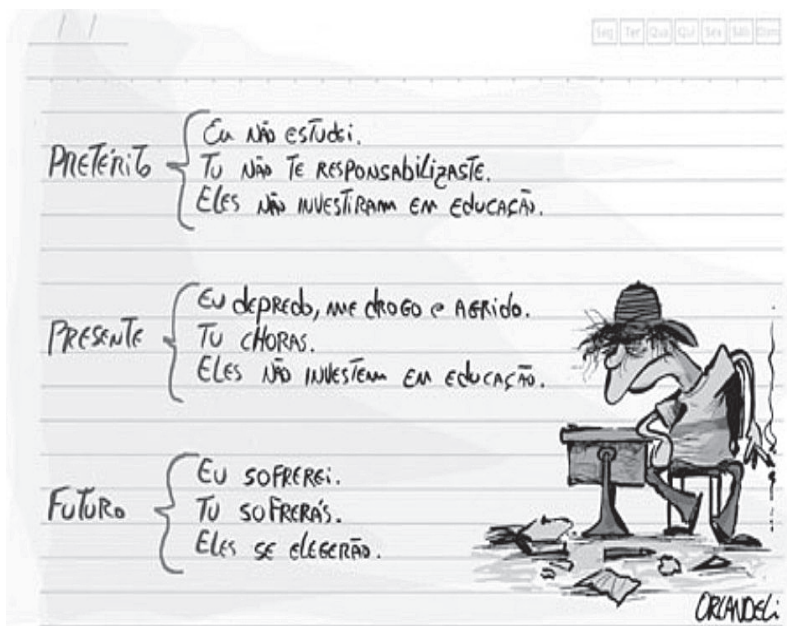 / /
Seg Ter Qua Qui Sex Sáb Dom
PRETÉRITO
Eu não estudei.
Tu não te responsabilizaste.
Eles não investiram em educação.
PRESENTE
Eu depredo, me drogo e agrido.
Tu choras.
Eles não investem em educação.
FUTURO
Eu sofrerei.
Tu sofrerás.
Eles se elegerão.
ORLANDELI